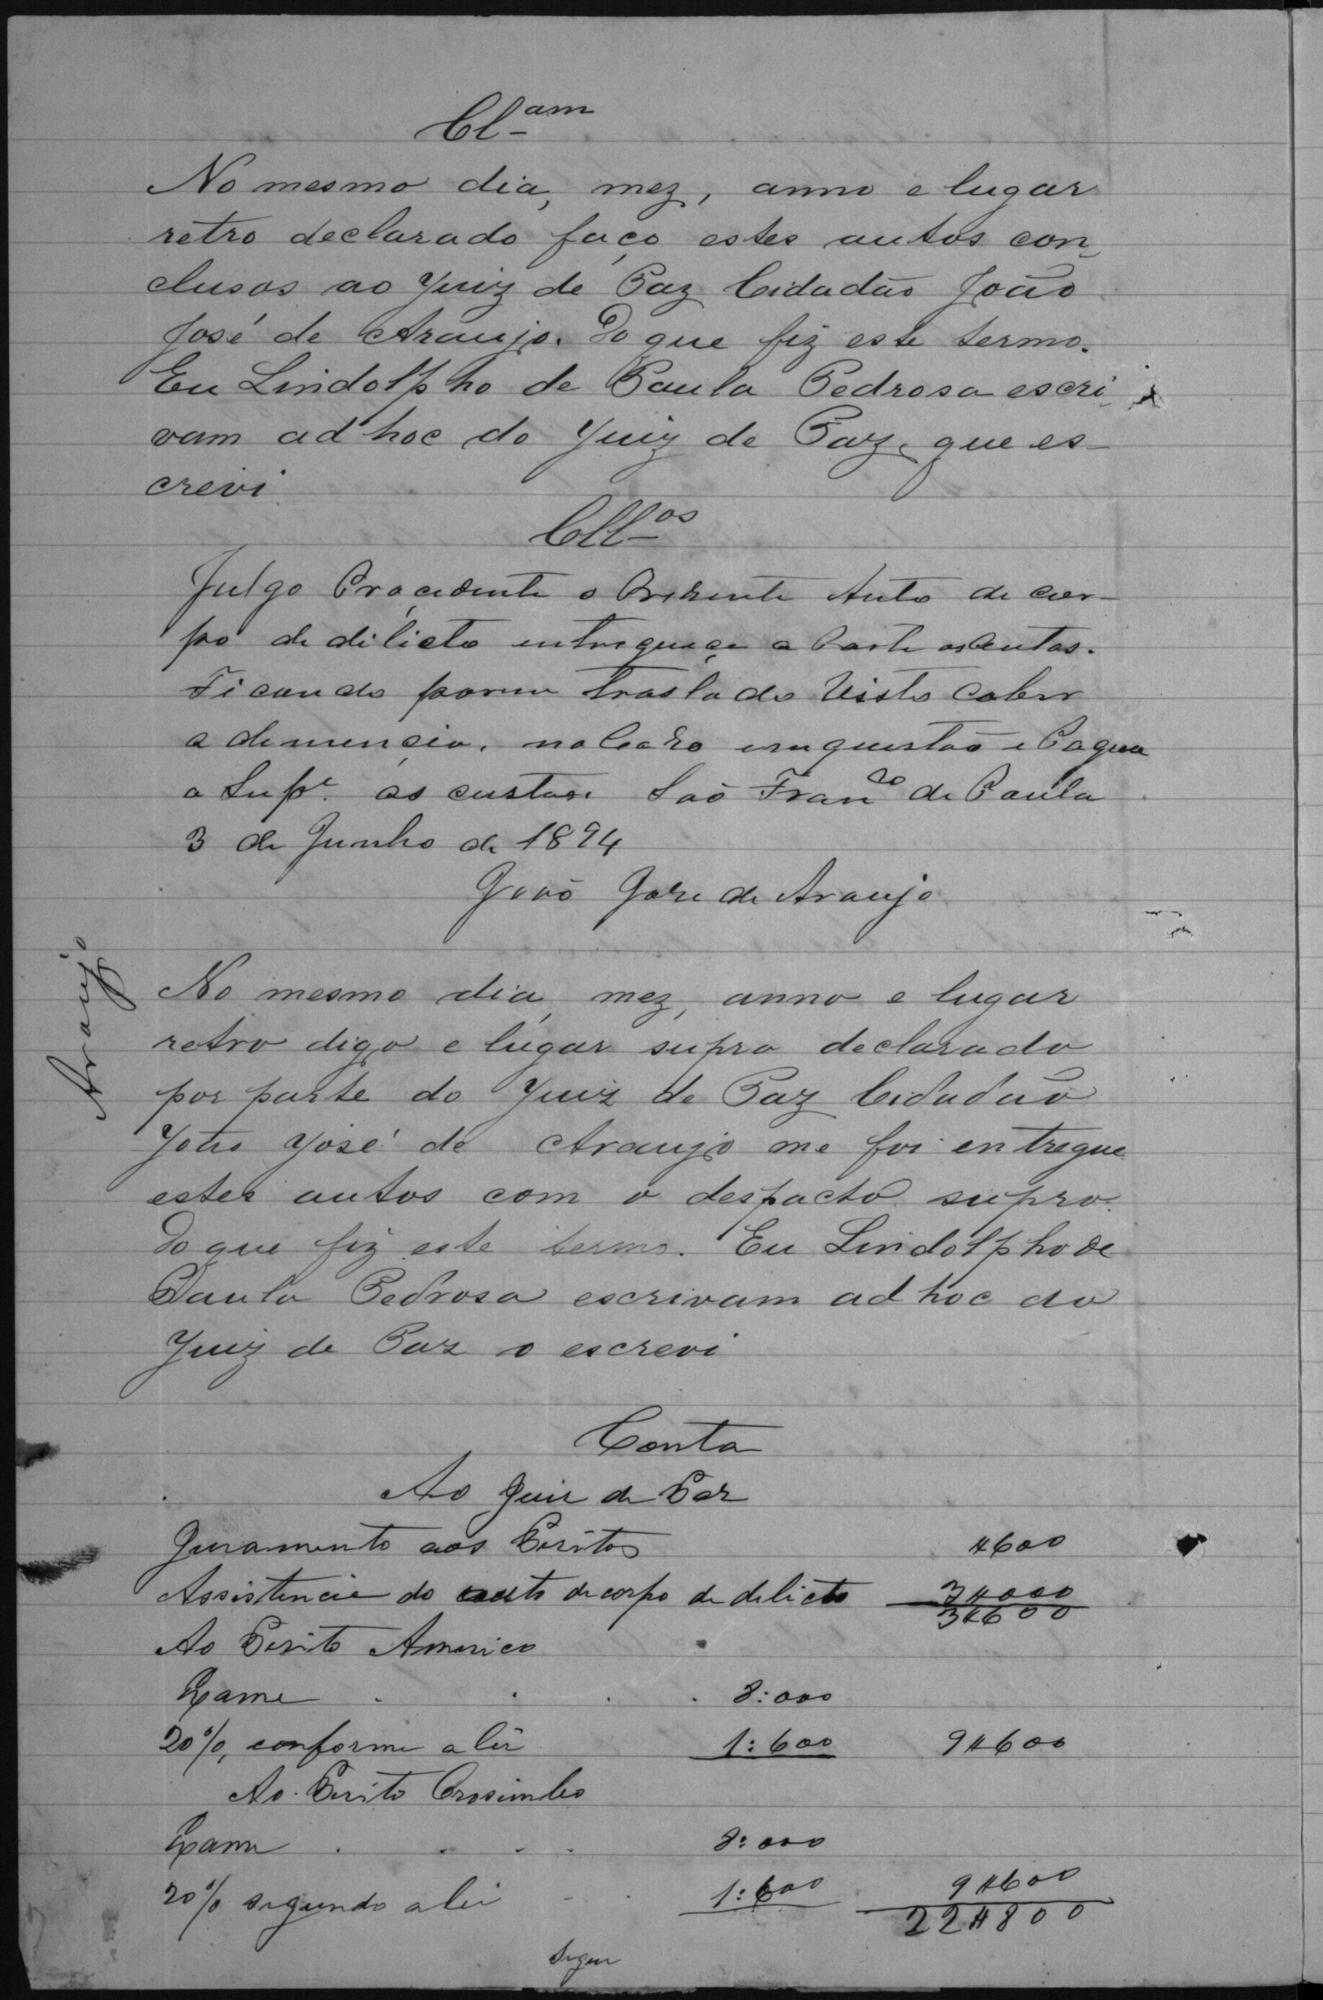 Cl-am
No mesmo dia, mez, anno e lugar
retro declarado faço estes autos con-
clusos ao Juiz de Paz Cidadão João
José de Araujo. Do que fiz este termo.
Eu Lindolpho de Paula Pedrosa escri-
vam ad hoc do Juiz de Paz, que es-
crevi
Cll-os
Julgo Procedente o Prezente Auto de cor-
po de dilicto entregueçe a Parte os Autos.
Ficando porem traslado Visto Caber
a denuncia, no Cazo em questão e Pague
a Supe. as custas. São Franco de Paula
3 de Junho de 1894
João Joze de Araujo
Araujo
No mesmo dia, mez, anno e lugar
retro digo e lugar supra declarado
por parte do Juiz de Paz Cidadão
João José de Araujo me foi entregue
estes autos com o despacto supro.
Do que fiz este termo. Eu Lindolpho de
Paula Pedrosa escrivam ad hoc do
Juiz de Paz o escrevi
Conta
Ao Juiz de Paz
Juramento aos Peritos $600
Assistencia do auto de corpo de delicto 3$000
3$600
Ao Perito Americo
Exame 8:000
20%, conforme a lei 1:600 9$600
Ao Perito
Exame 8:000
20% segundo a lei 1:600 9$600
22$800
Segue